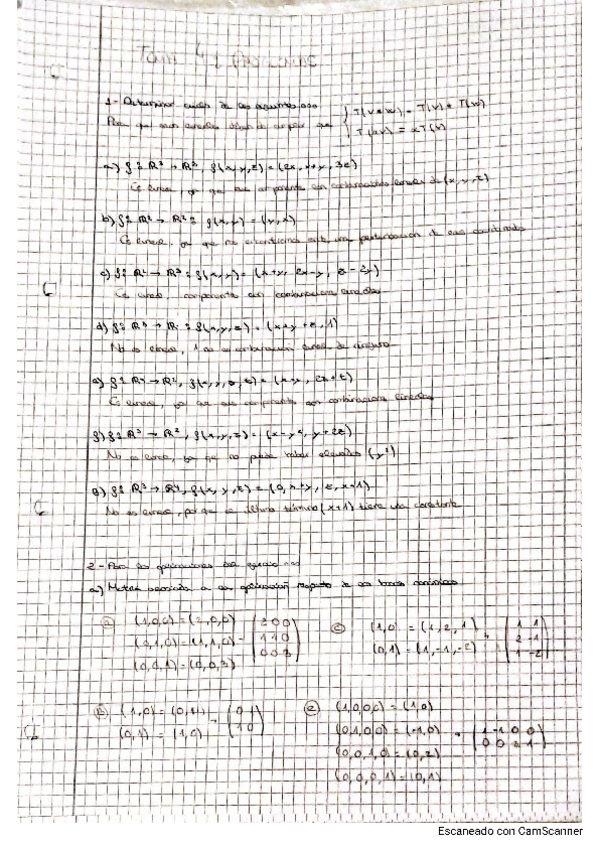 1- Determinar cuales de
T(v+w) = T(v) + T(w)
Para que sean lineales deben de cumplir que
T(αv) = αT(v)
a) f: R³ → R³, f(x,y,z) = (2x, x+y, 3z)
Es lineal, ya que sus componentes son combinaciones lineales de (x,y,z)
b) f: R² → R² : f(x,y) = (y,x)
Es lineal, ya que
c) f: R² → R³ : f(x,y) = (x+y, 2x-y,
Es lineal, componentes son combinaciones lineales
d) f: f(x,y,z) = (x+y+z, 1)
No es lineal, 1 no es combinación lineal de ninguna
e) f: R⁴ → R², = (x-y, 2z+t)
Es lineal, ya que sus componentes son combinaciones lineales
f) f: R³ → R², f(x,y,z) = (x-y², y+2z)
No es lineal, ya que no puede haber elevados (y²)
g) f: R³ → R⁴, f(x,y,z) = (0, x+y, z, x+1)
No es lineal, porque el último término (x+1) tiene una constante
2- Para las aplicaciones
a) Matriz asociada a la aplicación respecto de las bases canónicas
a (1,0,0) = (2,0,0)
(0,1,0) = (1,1,0)
(0,0,1) = (0,0,3)
c (1,0) = (1,2,1)
(0,1) = (1,-1,-2)
1 1
2 -1
1 -2
b (1,0) = (0,1)
(0,1) = (1,0)
0 1
1 0
e (1,0,0,0) = (1,0)
(0,1,0,0) = (-1,0)
(0,0,1,0) = (0,2)
(0,0,0,1) = (0,1)
1 -1 0 0
0 0 2 1
Escaneado con CamScanner